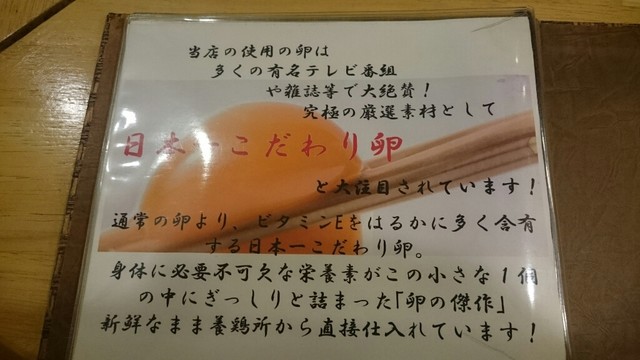 当店の使用の卵は
多くの有名テレビ番組
や雑誌等で大絶賛！
究極の厳選素材として
日本一こだわり卵
と大注目されています！
通常の卵より、ビタミンEをはるかに多く含有
する日本一こだわり卵。
身体に必要不可欠な栄養素がこの小さな１個
の中にぎっしりと詰まった「卵の傑作」
新鮮なまま養鶏所から直接仕入れています！